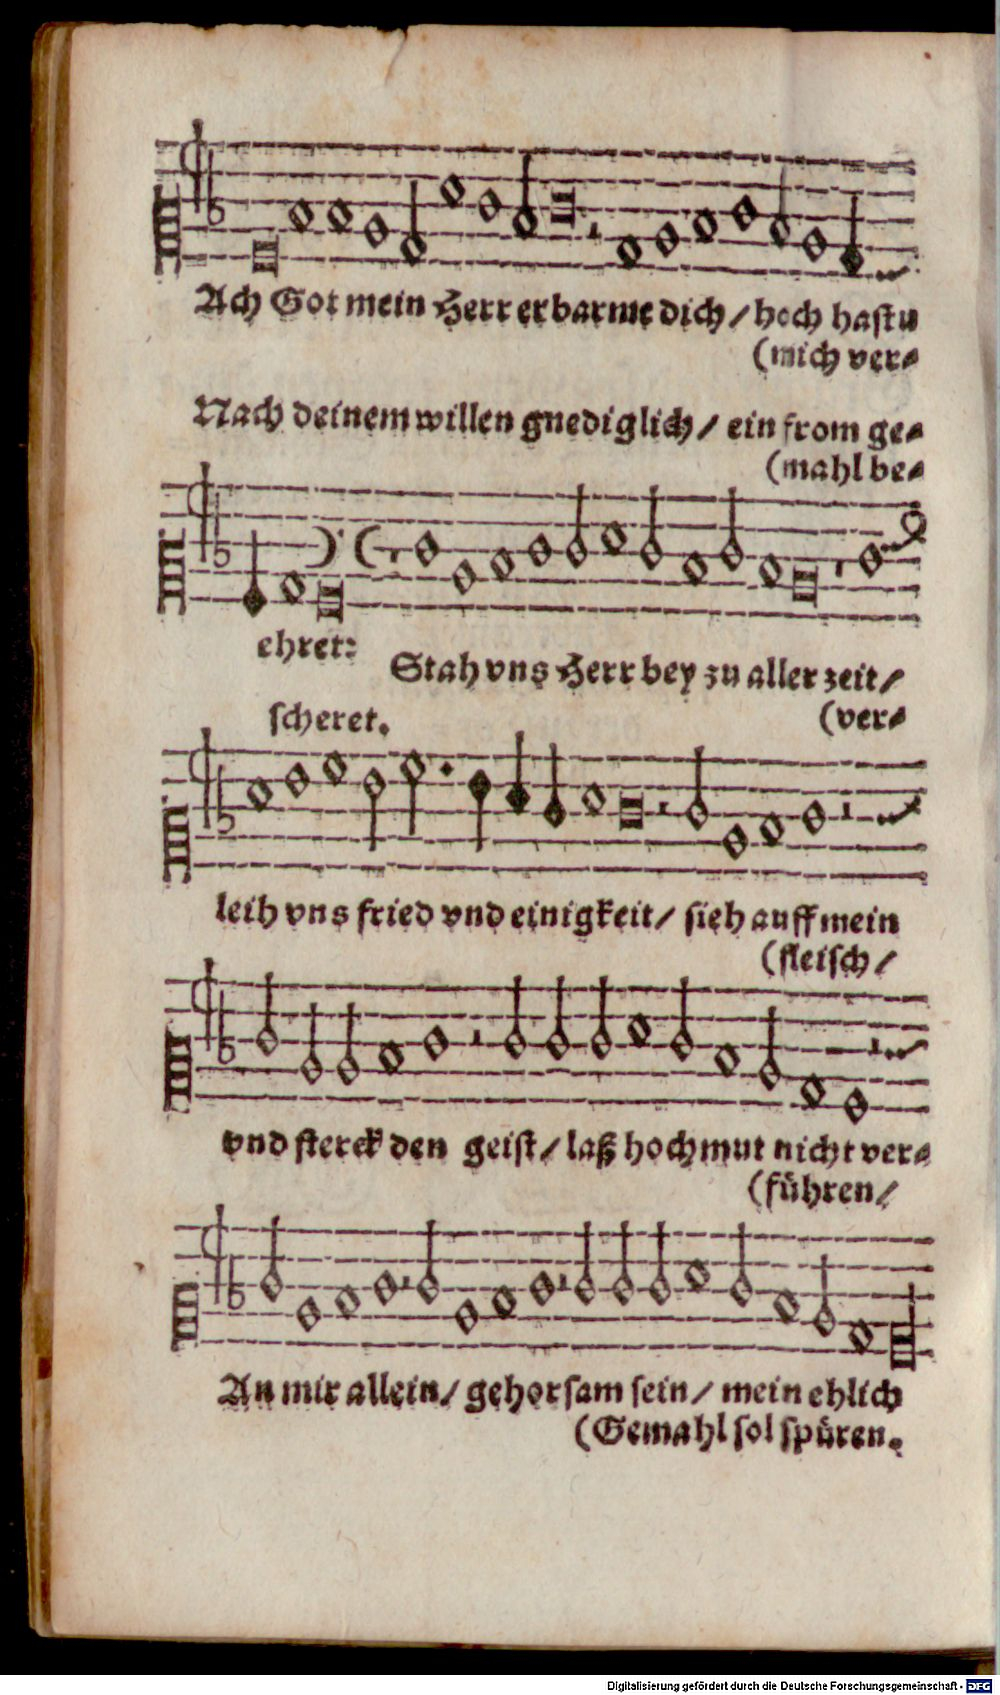 Ach Got mein Herr erbarme dich / hoch hastu
(mich ver⸗
Nach deinem willen gnediglich / ein from ge⸗
(mahl be⸗
ehret:
Stah vns Herr bey zu aller zeit /
scheret.
(ver⸗
leih vns fried vnd einigkeit / sieh auff mein
(fleisch /
vnd sterck den geist / laß hochmut nicht ver⸗
(führen /
An mir allein / gehorsam sein / mein ehlich
(Gemahl sol spüren.
Digitalisierung gefördert durch die Deutsche Forschungsgemeinschaft - DFG